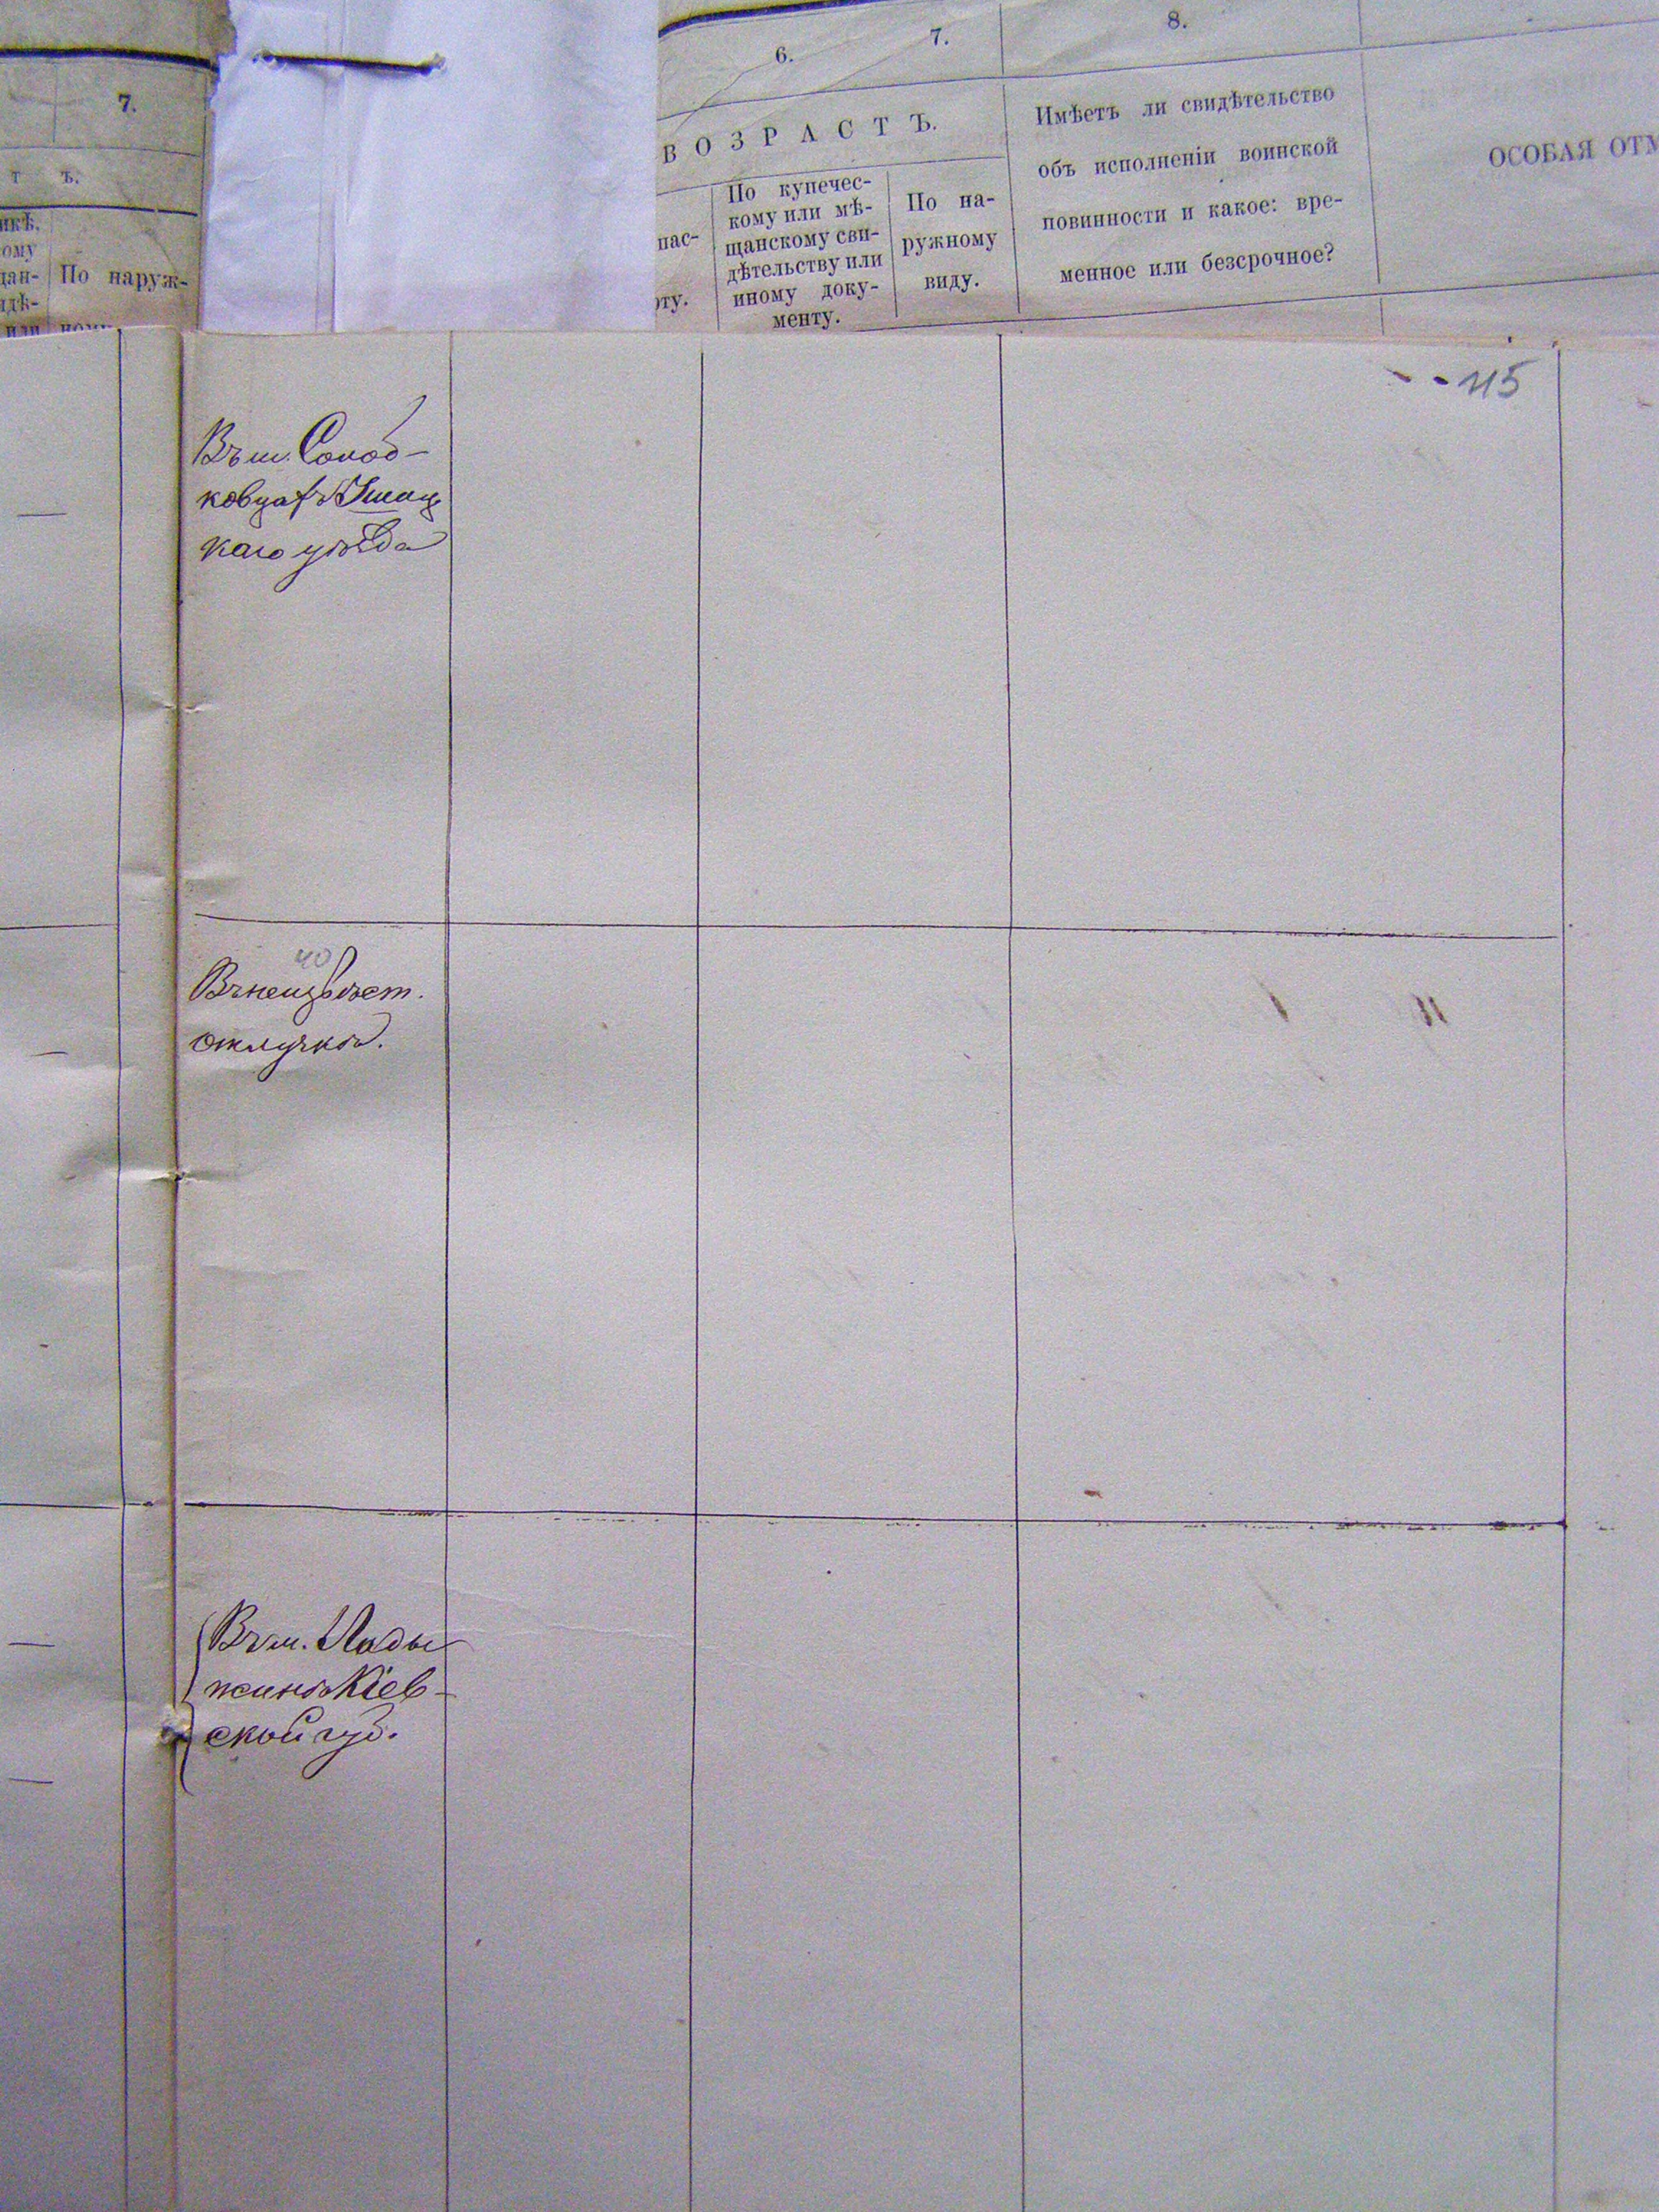 7.
Т Ъ.
По наруж-
6.
7.
8.
В О З Р А С Т Ъ.
пас-
По купечес-
кому или мѣ-
щанскому сви-
дѣтельству или
иному доку-
менту.
По на-
ружному
виду.
Имѣетъ ли свидѣтельство
объ исполненіи воинской
повинности и какое: вре-
менное или безсрочное?
ОСОБАЯ ОТМ
Въ м. Солоб-
ковцахъ Ушиц
каго уѣзда
40
Въ неизвѣст.
отлучкѣ.
Въ м. Лады
жинѣ Кіев-
ской губ.